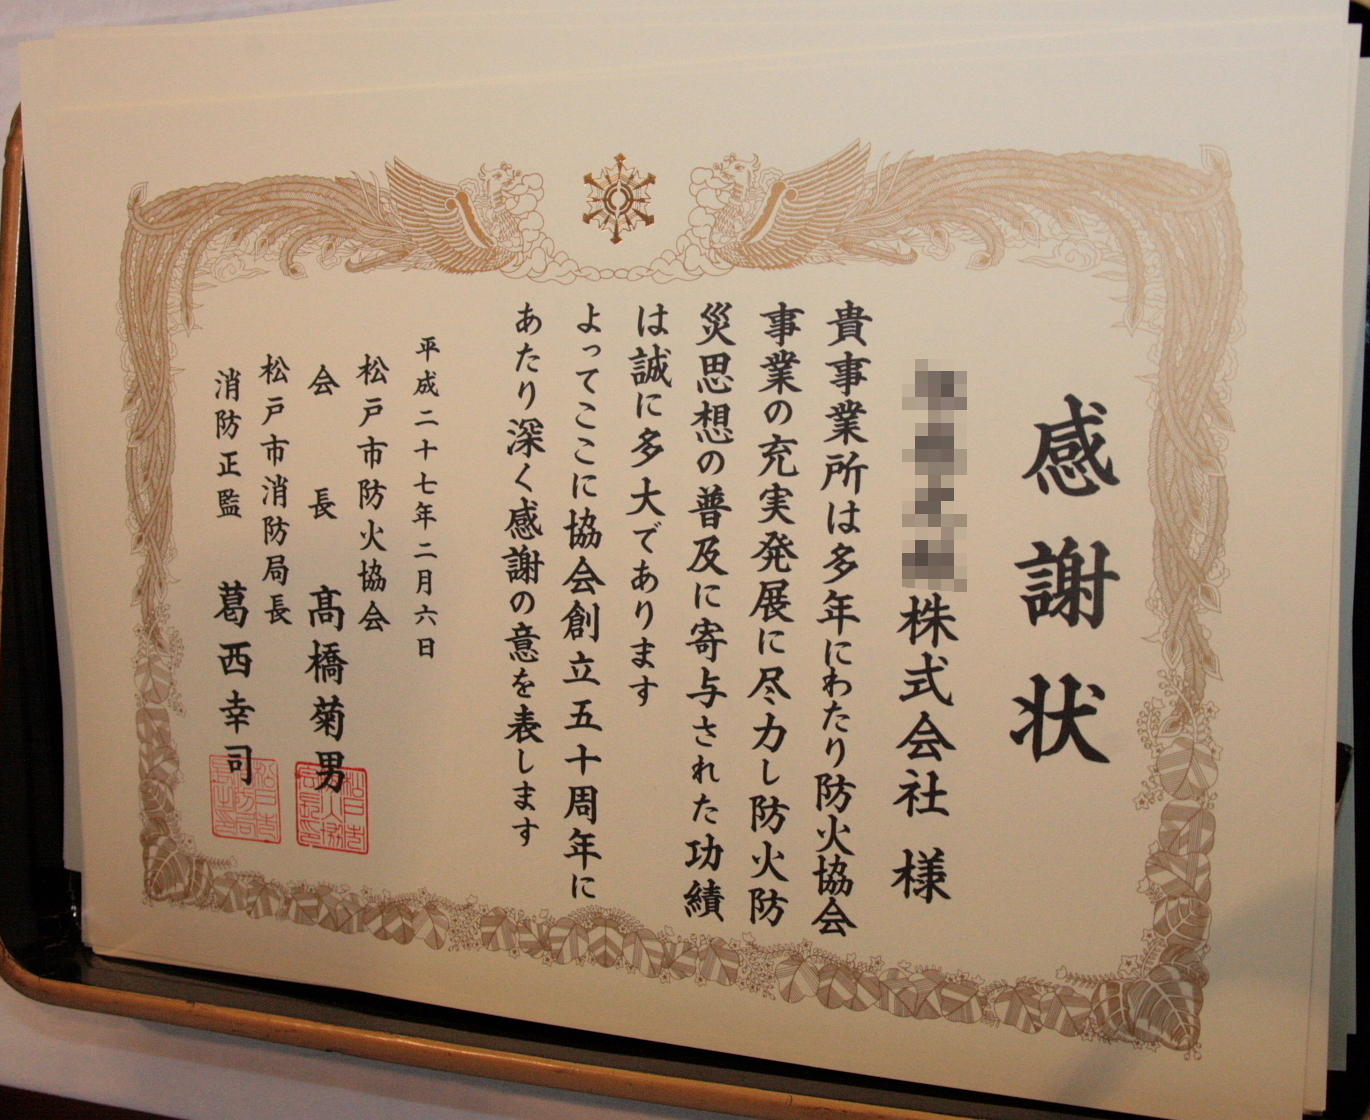 感謝状
株式会社 様
貴事業所は多年にわたり防火協会
事業の充実発展に尽力し防火防
災思想の普及に寄与された功績
は誠に多大であります
よってここに協会創立五十周年に
あたり深く感謝の意を表します
平成二十七年二月六日
松戸市防火協会
会長 髙橋菊男
松戸市消防局長
消防正監 葛西幸司